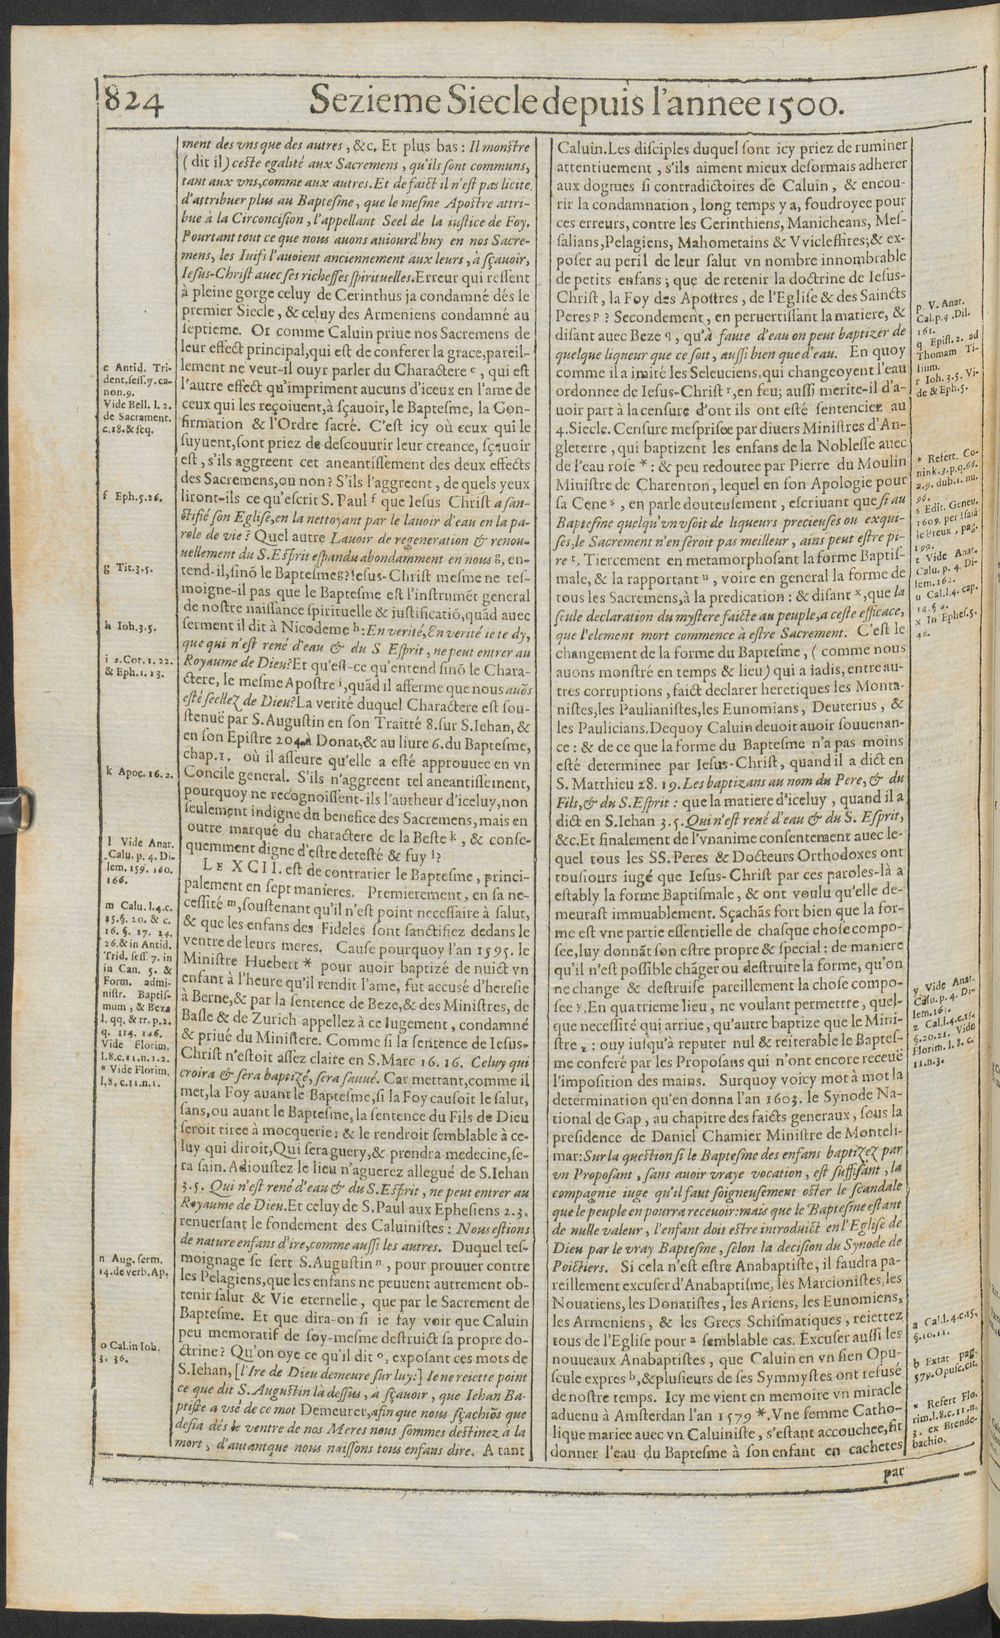 824
Sezieme Siecle depuis l'annee 1500.
ment des vns que des autres, &c. Et plus bas: Il monstre
(dit il) ceste egalité aux Sacremens, qu'ils sont communs,
tant aux vns, comme aux autres. Et de faict il n'est pas licite
d'attribuer plus au Baptesme, que le mesme Apostre attri-
bue à la Circoncision, l'appellant Seel de la iustice de Foy.
Pourtant tout ce que nous auons auiourd'huy en nos Sacre-
mens, les Iuifs l'auoient anciennement aux leurs, à sçauoir,
Iesus-Christ auec ses richesses spirituelles. Erreur qui ressent
à pleine gorge celuy de Cerinthus ja condamné dés le
premier Siecle, & celuy des Armeniens condamné au
septieme. Or comme Caluin priue nos Sacremens de
leur effect principal, qui est de conferer la grace, pareil-
lement ne veut-il ouyr parler du Charactere e, qui est
l'autre effect qu'impriment aucuns d'iceux en l'ame de
ceux qui les reçoiuent, à sçauoir, le Baptesme, la Con-
firmation & l'Ordre sacré. C'est icy où ceux qui le
suyuent, sont priez de descouurir leur creance, sçauoir
est, s'ils aggreent cet aneantissement des deux effects
des Sacremens, ou non? S'ils l'aggreent, de quels yeux
liront-ils ce qu'escrit S. Paul f que Iesus Christ a san-
ctifié son Eglise, en la nettoyant par le lauoir d'eau en la pa-
role de vie? Quel autre Lauoir de regeneration & renou-
uellement du S. Esprit espandu abondamment en nous g, en-
tend-il, sinõ le Baptesmes? Iesus-Christ mesme ne tes-
moigne-il pas que le Baptesme est l'instrumẽt general
de nostre naissance spirituelle & iustificatiõ, quãd auec
serment il dit à Nicodeme h: En verité, En verité ie te dy,
que qui n'est rené d'eau & du S Esprit, ne peut entrer au
Royaume de Dieu? Et qu'est-ce qu'entend sinõ le Chara-
ctere, le mesme Apostre i, quãd il afferme que nous auõs
esté seellez de Dieu? La verité duquel Charactere est sou-
stenuë par S. Augustin en son Traitté 8. sur S. Iehan, &
en son Epistre 204. à Donat, & au liure 6. du Baptesme,
chap. 1. où il asseure qu'elle a esté approuuee en vn
Concile general. S'ils n'aggreent tel aneantissement,
pourquoy ne recognoissent-ils l'autheur d'iceluy, non
seulement indigne du benefice des Sacremens, mais en
outre marqué du charactere de la Beste k, & conse-
quemment digne d'estre detesté & fuy l?
LE XCII. est de contrarier le Baptesme, princi-
palement en sept manieres. Premierement, en sa ne-
cessité m, soustenant qu'il n'est point necessaire à salut,
& que les enfans des Fideles sont sanctifiez dedans le
ventre de leurs meres. Cause pourquoy l'an 1595. le
Ministre Huebert * pour auoir baptizé de nuict vn
enfant à l'heure qu'il rendit l'ame, fut accusé d'heresie
à Berne, & par la sentence de Beze, & des Ministres, de
Basle & de Zurich appellez à ce Iugement, condamné
& priué du Ministere. Comme si la sentence de Iesus-
Christ n'estoit assez claire en S. Marc 16. 16. Celuy qui
croira & sera baptizé, sera sauué. Car mettant, comme il
met, la Foy auant le Baptesme, si la Foy causoit le salut,
sans, ou auant le Baptesme, la sentence du Fils de Dieu
seroit tiree à mocquerie: & le rendroit semblable à ce-
luy qui diroit, Qui sera guery, & prendra medecine, se-
ra sain. Adioustez le lieu n'aguerez allegué de S. Iehan
3. 5. Qui n'est rené d'eau & du S. Esprit, ne peut entrer au
Royaume de Dieu. Et celuy de S. Paul aux Ephesiens 2. 3.
renuersant le fondement des Caluinistes: Nous estions
de nature enfans d'ire, comme aussi les autres. Duquel tes-
moignage se sert S. Augustin n, pour prouuer contre
les Pelagiens, que les enfans ne peuuent autrement ob-
tenir salut & Vie eternelle, que par le Sacrement de
Baptesme. Et que dira-on si ie fay voir que Caluin
peu memoratif de soy-mesme destruict sa propre do-
ctrine? Qu'on oye ce qu'il dit o, exposant ces mots de
S. Iehan, [l'Ire de Dieu demeure sur luy:] Ie ne reiette point
ce que dit S. Augustin là dessus, à sçauoir, que Iehan Ba-
ptiste a vsé de ce mot Demeurer, afin que nous sçachiõs que
desia dés le ventre de nos Meres nous sommes destinez à la
mort, d'autant que nous naissons tous enfans dire. A tant
e Antid. Tri-
dent. sess. 7. ca-
non. 9.
Vide Bell. l. 2.
de Sacrament.
c. 18. & seq.
f Eph. 5. 26.
g Tit. 3. 5.
h Ioh. 3. 5.
i 2. Cor. 1. 22.
& Eph. 1. 13.
k Apoc. 16. 2.
l Vide Anat.
Calu. p. 4. Di-
lem. 159. 160.
166.
m Calu. l. 4. c.
15. §. 20. & c.
16. §. 17. 24.
26. & in Antid.
Trid. sess. 7. in
in Can. 5. &
Form. admi-
nistr. Baptis-
mum, & Beza
l. qq. & rr. p. 2.
q. 114. 146.
Vide Florim.
l. 8. c. 11. n. 1. 2.
* Vide Florim.
l. 8. c. 11. n. 1.
n Aug. serm.
14. de verb. Ap.
o Cal. in Ioh.
3. 36.
Caluin. Les disciples duquel sont icy priez de ruminer
attentiuement, s'ils aiment mieux desormais adherer
aux dogmes si contradictoires de Caluin, & encou-
rir la condamnation, long temps y a, foudroyee pour
ces erreurs, contre les Cerinthiens, Manicheans, Mes-
salians, Pelagiens, Mahometains & Vviclefites; & ex-
poser au peril de leur salut vn nombre innombrable
de petits enfans; que de retenir la doctrine de Iesus-
Christ, la Foy des Apostres, de l'Eglise & des Saincts
Peres p? Secondement, en peruertissant la matiere, &
disant auec Beze q, qu'à faute d'eau on peut baptizer de
quelque liqueur que ce soit, aussi bien que d'eau. En quoy
comme il a imité les Seleuciens, qui changeoyent l'eau
ordonnee de Iesus-Christ r, en feu; aussi merite-il d'a-
uoir part à la censure d'ont ils ont esté sentenciez au
4. Siecle. Censure mesprisee par diuers Ministres d'An-
gleterre, qui baptizent les enfans de la Noblesse auec
de l'eau rose *: & peu redoutee par Pierre du Moulin
Ministre de Charenton, lequel en son Apologie pour
sa Cene s, en parle douteusement, escriuant que si au
Baptesme quelqu'vn vsoit de liqueurs precieuses ou exqui-
ses, le Sacrement n'en seroit pas meilleur, ains peut estre pi-
re t. Tiercement en metamorphosant la forme Baptis-
male, & la rapportant u, voire en general la forme de
tous les Sacremens, à la predication: & disant x, que la
seule declaration du mystere faicte au peuple, a ceste efficace,
que l'element mort commence à estre Sacrement. C'est le
changement de la forme du Baptesme, (comme nous
auons monstré en temps & lieu) qui a iadis, entre au-
tres corruptions, faict declarer heretiques les Monta-
nistes, les Paulianistes, les Eunomians, Deuterius, &
les Paulicians. Dequoy Caluin deuoit auoir souuenan-
ce: & de ce que la forme du Baptesme n'a pas moins
esté determinee par Iesus-Christ, quand il a dict en
S. Matthieu 28. 19. Les baptizans au nom du Pere, & du
Fils, & du S. Esprit: que la matiere d'iceluy, quand il a
dict en S. Iehan 3. 5. Qui n'est rené d'eau & du S. Esprit,
&c. Et finalement de l'vnanime consentement auec le-
quel tous les SS. Peres & Docteurs Orthodoxes ont
tousiours iugé que Iesus-Christ par ces paroles-là a
estably la forme Baptismale, & ont voulu qu'elle de-
meurast immuablement. Sçachãs fort bien que la for-
me est vne partie essentielle de chasque chose compo-
see, luy donnãt son estre propre & special: de maniere
qu'il n'est possible chãger ou destruire la forme, qu'on
ne change & destruise pareillement la chose compo-
see y. En quatrieme lieu, ne voulant permettre, quel-
que necessité qui arriue, qu'autre baptize que le Mini-
stre z: ouy iusqu'à reputer nul & reiterable le Baptes-
me conferé par les Proposans qui n'ont encore receuë
l'imposition des mains. Surquoy voicy mot à mot la
determination qu'en donna l'an 1603. le Synode Na-
tional de Gap, au chapitre des faicts generaux, sous la
presidence de Daniel Chamier Ministre de Monteli-
mar: Sur la question si le Baptesme des enfans baptizez par
vn Proposant, sans auoir vraye vocation, est suffisant, la
compagnie iuge qu'il faut soigneusement oster le scandale
que le peuple en pourra receuoir: mais que le Baptesme estant
de nulle valeur, l'enfant doit estre introduict en l'Eglise de
Dieu par le vray Baptesme, selon la decision du Synode de
Poictiers. Si cela n'est estre Anabaptiste, il faudra pa-
reillement excuser d'Anabaptisme, les Marcionistes, les
Nouatiens, les Donatistes, les Ariens, les Eunomiens,
les Armeniens, & les Grecs Schismatiques, reiettez
tous de l'Eglise pour a semblable cas. Excuser aussi les
nouueaux Anabaptistes, que Caluin en vn sien Opu-
scule expres b, & plusieurs de ses Symmystes ont refusé
de nostre temps. Icy me vient en memoire vn miracle
aduenu à Amsterdan l'an 1579 *. Vne femme Catho-
lique mariee auec vn Caluiniste, s'estant accouchee, fit
donner l'eau du Baptesme à son enfant en cachetes
p V. Anat.
Cal. p. 4. Dil.
161.
q Epist. 2. ad
Thomam Ti-
lium.
r Ioh. 3. 5. Vi-
de & Eph. 5.
* Refert. Co-
nink. 3. p. q. 66.
a. 9. dub. 1. nu.
96.
s Edit. Geneu.
1609. per Isaia
le Preux, pag.
199.
t Vide Anat.
Calu. p. 4. Di-
lem. 162.
u Cal. l. 4. cap.
14. § 4.
x In Ephes. 5.
y Vide Anat.
Calu. p. 4. Di-
lem. 161.
z Cal. l. 4. c. 15.
§. 20. 21. Vide
Florim. l. 8. c.
11. n. 3.
a Cal. l. 4. c. 15.
§. 10. 11.
b Extat pag.
579. Opusc. cit.
* Refert Flo.
rim. l. 8. c. 11. n.
3. ex Brende-
bachio.
par